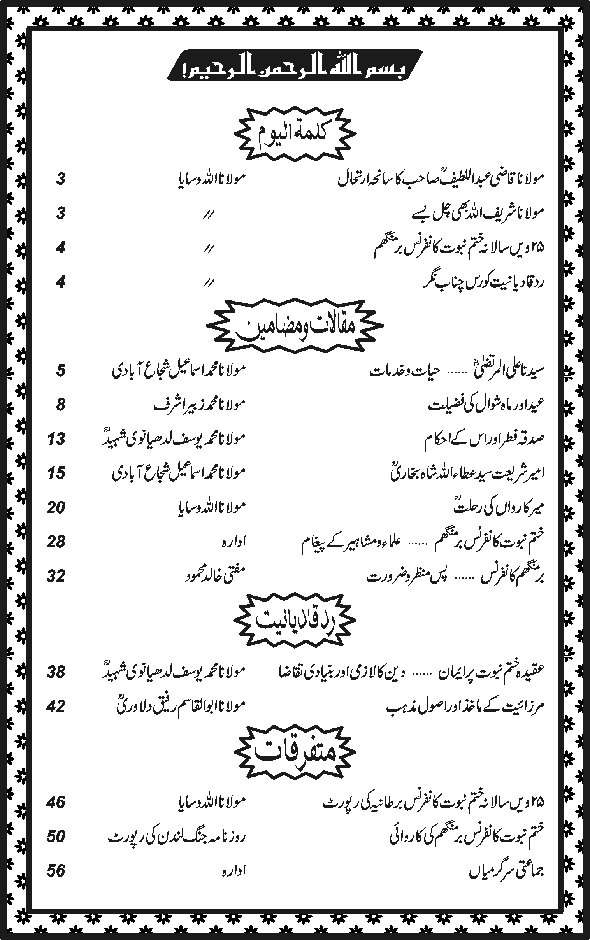 بسم اللہ الرحمن الرحیم!
کلمۃ الیوم
مولانا قاضی عبداللطیفؒ صاحب کا سانحہ ارتحال مولانا اللہ وسایا 3
مولانا شریف اللہ بھی چل بسے // 3
۲۵ ویں سالانہ ختم نبوت کانفرنس برمنگھم // 4
رد قادیانیت کورس چناب نگر // 4
مقالات ومضامین
سیدنا علی المرتضیٰؓ ...... حیات وخدمات مولانا محمد اسماعیل شجاع آبادی 5
عید اور ماہ شوال کی فضیلت مولانا محمد زبیر اشرف 8
صدقہ فطر اور اس کے احکام مولانا محمد یوسف لدھیانوی شہیدؒ 13
امیر شریعت سید عطاء اللہ شاہ بخاریؒ مولانا محمد اسماعیل شجاع آبادی 15
میر کارواں کی رحلتؒ مولانا اللہ وسایا 20
ختم نبوت کانفرنس برمنگھم ...... علماء ومشاہیر کے پیغام ادارہ 28
برمنگھم کانفرنس ...... پس منظر وضرورت مفتی خالد محمود 32
رد قادیانیت
عقیدہ ختم نبوت پر ایمان ...... دین کا لازمی اور بنیادی تقاضا مولانا محمد یوسف لدھیانوی شہیدؒ 38
مرزائیت کے ماخذ اور اصول مذہب مولانا ابوالقاسم رفیق دلاوریؒ 42
متفرقات
۲۵ ویں سالانہ ختم نبوت کانفرنس برطانیہ کی رپورٹ مولانا اللہ وسایا 46
ختم نبوت کانفرنس برمنگھم کی کاروائی روزنامہ جنگ لندن کی رپورٹ 50
جماعتی سرگرمیاں ادارہ 56